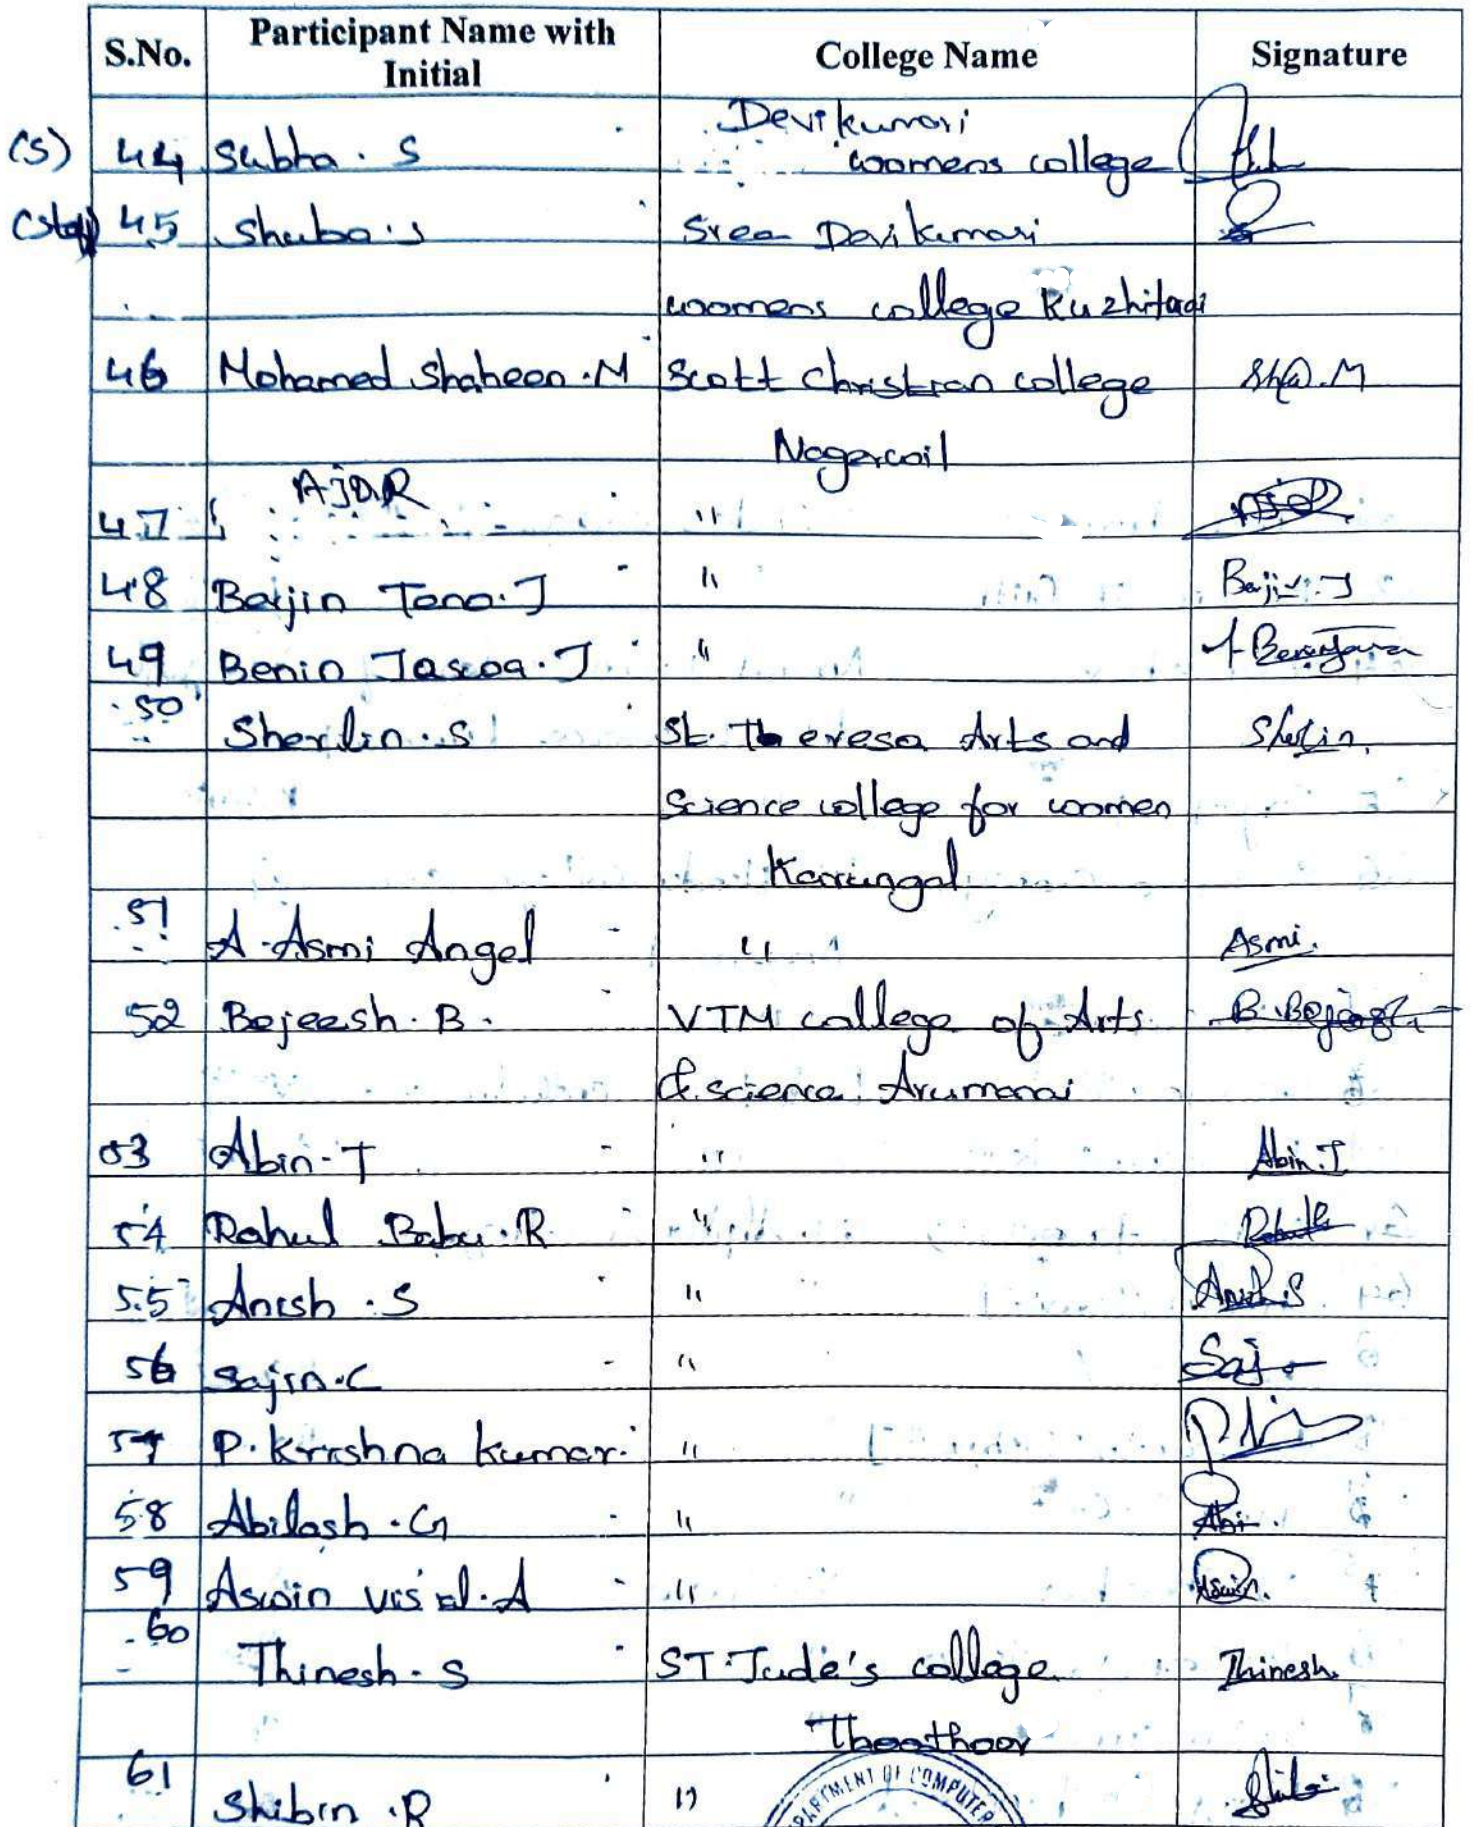 S.No. Participant Name with Initial College Name Signature
Devikumari
(S) 44 Subha. S womens college
(Staff) 45 Shuba.S Sree Devikumari
womens college Kuzhitudi
46 Mohamed Shaheen.M Scott Christian college Sh@.M
Nagercoil
AJO.R
47 "
48 Berjin Tono.J " Berjin.J
49 Benin Jascoa.J "
50 Sherlin.S St. Theresa Arts and Sherlin.
Science college for women
Karungal
51 A.Asmi Angel " Asmi.
52 Bejeesh.B. VTM college of Arts B.Bejeesh
& science Arumanai
53 Abin-T " Abin.T
54 Rahul Babu.R "
55 Anish.S " Anish.S
56 Sajin.C " Saj
57 P.Krishna Kumar. "
58 Abilash.G " Abi.
59 Aswin visal.A " Aswin.
60 Thinesh.S ST.Jude's college Thinesh.
Thoothoor
61 Shibin.R "
DEPARTMENT OF COMPUTER